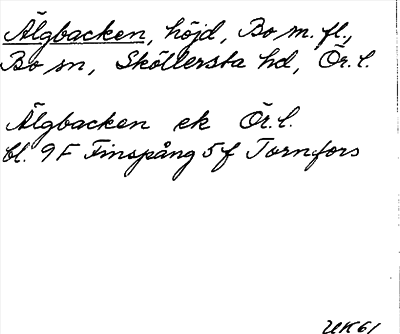 Älgbacken, höjd, Bo m. fl.,
Bo sn, Sköllersta hd, Ör. l.
Älgbacken ek Ör. l.
bl. 9F Finspång 5f Tornfors
UK61